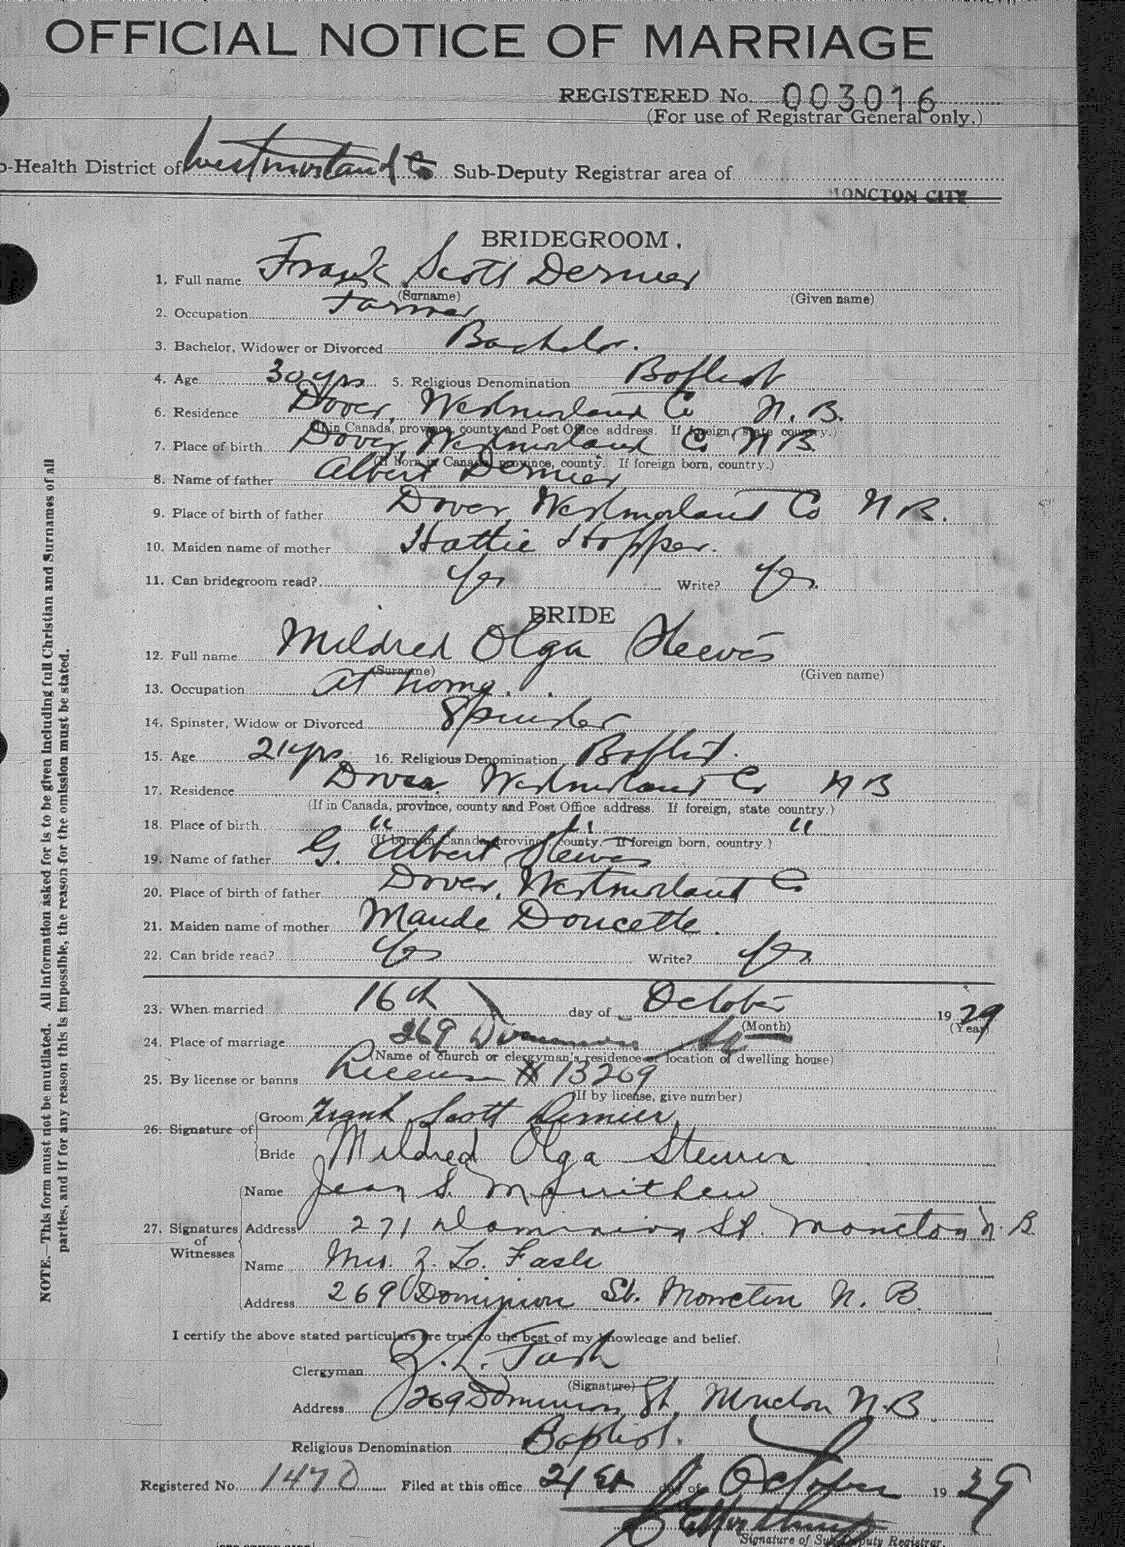 OFFICIAL NOTICE OF MARRIAGE
REGISTERED No. 003016
(For use of Registrar General only.)
b-Health District of Westmorland Co Sub-Deputy Registrar area of
MONCTON CITY
BRIDEGROOM.
1. Full name Frank Scott Dernier
(Surname) (Given name)
2. Occupation Farmer
3. Bachelor, Widower or Divorced Bachelor.
4. Age 30 yrs 5. Religious Denomination Baptist
6. Residence Dover, Westmorland Co N. B.
(If in Canada, province, county and Post Office address. If foreign, state country.)
7. Place of birth Dover Westmorland Co N B
(If born in Canada, province, county. If foreign born, country.)
8. Name of father Albert Dernier
9. Place of birth of father Dover, Westmorland Co N B.
10. Maiden name of mother Hattie Hopper.
11. Can bridegroom read? Yes Write? Yes
BRIDE
12. Full name Mildred Olga Steeves
(Surname) (Given name)
13. Occupation at home.
14. Spinster, Widow or Divorced Spinster
15. Age 21 yrs 16. Religious Denomination Baptist.
17. Residence Dover Westmorland Co N B
(If in Canada, province, county and Post Office address. If foreign, state country.)
18. Place of birth " " "
(If born in Canada, province, county. If foreign born, country.)
19. Name of father G. Albert Steeves
20. Place of birth of father Dover, Westmorland Co
21. Maiden name of mother Maude Doucette.
22. Can bride read? Yes Write? Yes
23. When married 16th day of October 1929
(Month) (Year)
24. Place of marriage 269 Dominion St
(Name of church or clergyman's residence or location of dwelling house)
25. By license or banns License # 13269
(If by license, give number)
26. Signature of
Groom Frank Scott Dernier
Bride Mildred Olga Steeves
27. Signatures of Witnesses
Name Jean S.
Address 271 Dominion St. Moncton N. B.
Name Mrs. Z. L. Fash
Address 269 Dominion St. Moncton N. B.
I certify the above stated particulars are true to the best of my knowledge and belief.
Clergyman Z. L. Fash
(Signature)
Address 269 Dominion St. Moncton N.B.
Religious Denomination Baptist.
Registered No. 1470 Filed at this office 21st day of October 1929
Signature of Sub-Deputy Registrar.
NOTE.—This form must not be mutilated. All information asked for is to be given including full Christian and Surnames of all
parties, and if for any reason this is impossible, the reason for the omission must be stated.